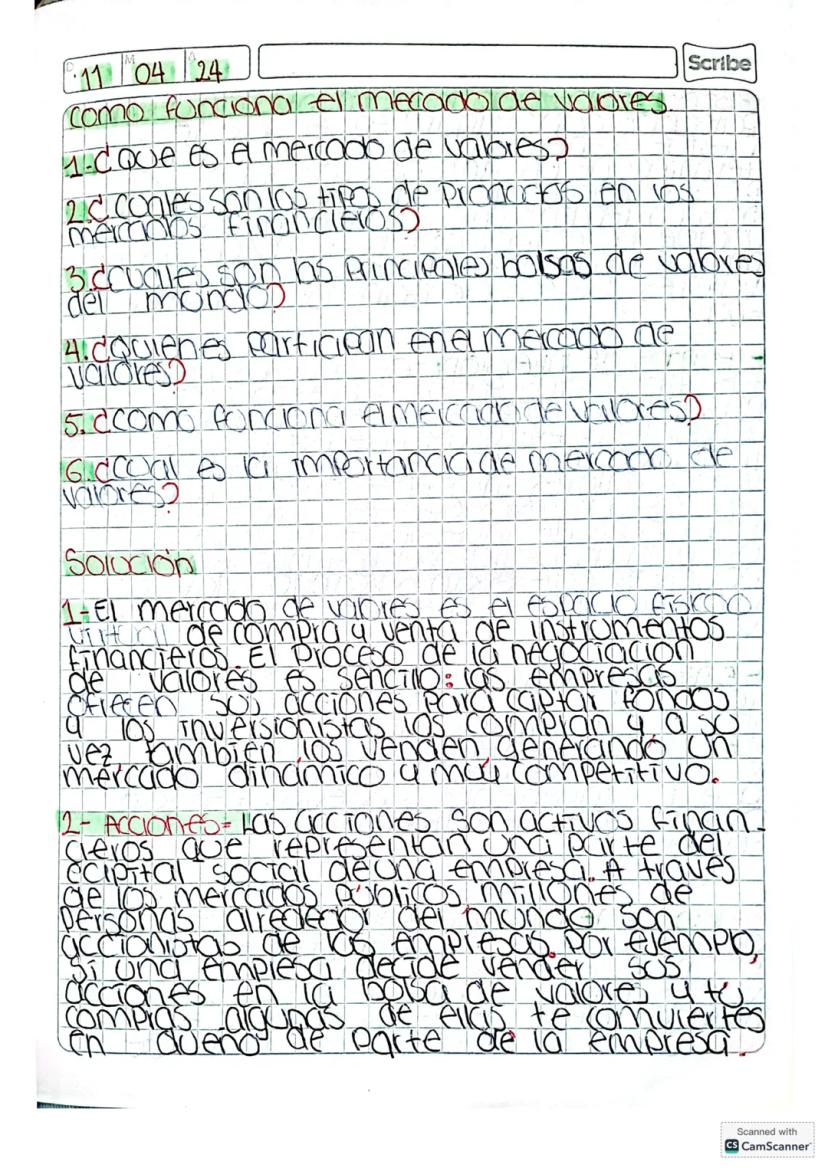 D 11 M 04 A 24
Scribe
como funciona el mercado de valores.
1-¿que es el mercado de valores?
2.¿cuales son los tipos de productos en los
mercados financieros?
3.¿cuales son las principales bolsas de valores
del mundo?
4.¿quienes participan en el mercado de
valores?
5.¿como funciona el mercado de valores?
6.¿cual es la importancia de mercado de
valores?
Solución
1-El mercado de valores es el espacio fisico o
virtual de compra y venta de instrumentos
financieros. El proceso de la negociacion
de valores es sencillo: las empresas
ofrecen sus acciones para captar fondos
y los inversionistas los compran y a su
vez tambien los venden, generando un
mercado dinámico y muy competitivo.
2- Acciones= Las acciones son activos finan-
cieros que representan una parte del
capital social de una empresa. A traves
de los mercados públicos millones de
personas alrededor del mundo son
accionistas de las empresas. Por ejemplo,
si una empresa decide vender sus
acciones en la bolsa de valores y tu
compras algunas de ellas te comviertes
en dueño de parte de la empresa.
Scanned with
CS CamScanner